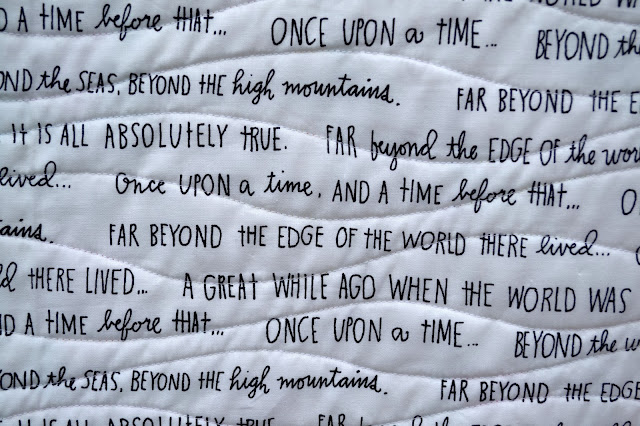 THE WORLD WA
D A TIME before tHAT... ONCE UPON a TIME... BEYOND the
OND the SEAS, BEYOND THE high mountains. FAR BEYOND THE E
IT IS ALL ABSOLUtELY TRUE. FAR beyond the EDGE OF the wor
lived... Once UPON a time, AND A tIME before tHAT... O
tains. FAR BEYOND tHE EDGE OF tHE WORLD tHERE lived...
ld tHERE LIVED... A GREAT WHILE AGO WHEN tHE WORLD WAS
ND A tIME before tHAT... ONCE UPON a tIME... BEYOND the w
YOND the SEAS, BEYOND tHE high mountains. FAR BEYOND tHE EDGE
IT IS ALL ABSOLUtELY TRUE. FAR beyond the EDGE OF the